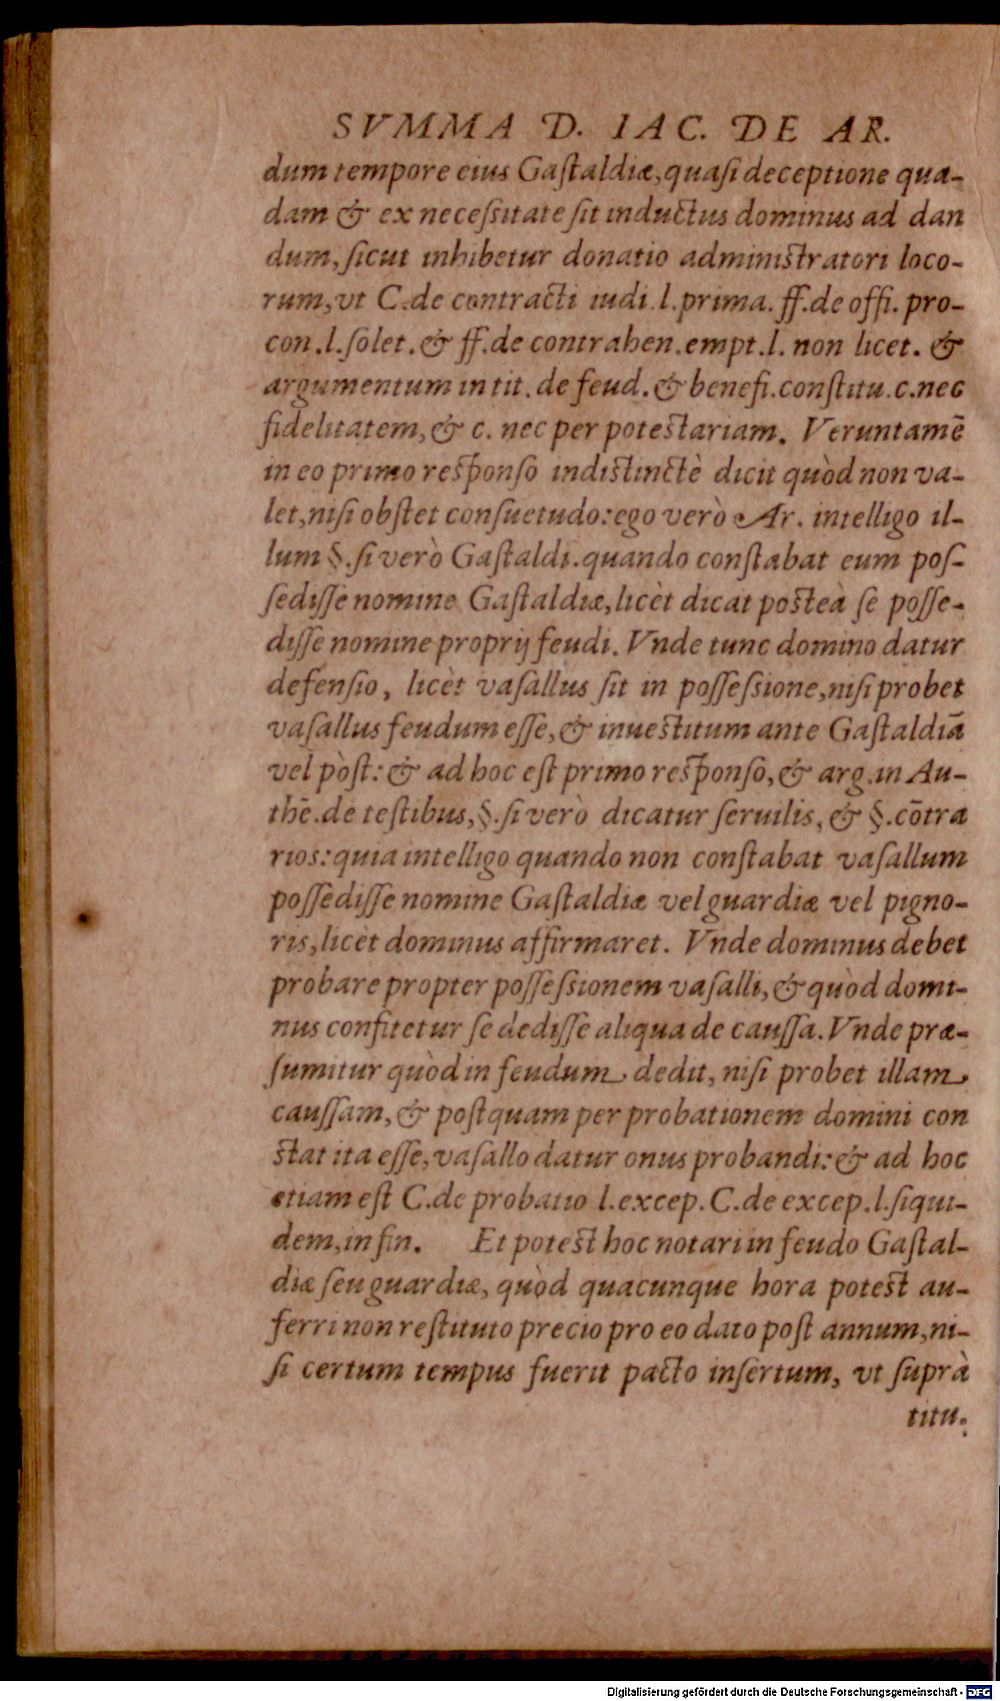 SVMMA D. IAC. DE AR.
dum tempore eius Gaſtaldiæ, quaſi deceptione qua-
dam & ex neceſsitate ſit inductus dominus ad dan
dum, ſicut inhibetur donatio adminiſtratori loco-
rum, vt C. de contracti iudi. l. prima. ff. de offi. pro-
con. l. ſolet. & ff. de contrahen. empt. l. non licet. &
argumentum in tit. de feud. & benefi. conſtitu. c. nec
fidelitatem, & c. nec per poteſtariam. Veruntamē
in eo primo reſponſo indiſtinctè dicit quòd non va-
let, niſi obſtet conſuetudo: ego verò Ar. intelligo il-
lum §. ſi verò Gaſtaldi. quando conſtabat eum poſ-
ſediſſe nomine Gaſtaldiæ, licèt dicat poſteà ſe poſſe-
diſſe nomine proprij feudi. Vnde tunc domino datur
defenſio, licèt vaſallus ſit in poſſeſsione, niſi probet
vaſallus feudum eſſe, & inueſtitum ante Gaſtaldiā
vel pòſt: & ad hoc eſt primo reſponſo, & arg. in Au-
thē. de teſtibus, §. ſi verò dicatur ſeruilis, & §. cōtra
rios: quia intelligo quando non conſtabat vaſallum
poſſediſſe nomine Gaſtaldiæ vel guardiæ vel pigno-
ris, licèt dominus affirmaret. Vnde dominus debet
probare propter poſſeſsionem vaſalli, & quòd domi-
nus confitetur ſe dediſſe aliqua de cauſſa. Vnde præ-
ſumitur quòd in feudum dedit, niſi probet illam
cauſſam, & poſtquam per probationem domini con
ſtat ita eſſe, vaſallo datur onus probandi: & ad hoc
etiam eſt C. de probatio l. excep. C. de excep. l. ſiqui-
dem, in fin. Et poteſt hoc notari in feudo Gaſtal-
diæ ſeu guardiæ, quòd quacunque hora poteſt au-
ferri non reſtituto precio pro eo dato poſt annum, ni-
ſi certum tempus fuerit pacto inſertum, vt ſuprà
titu.
Digitalisierung gefördert durch die Deutsche Forschungsgemeinschaft - DFG